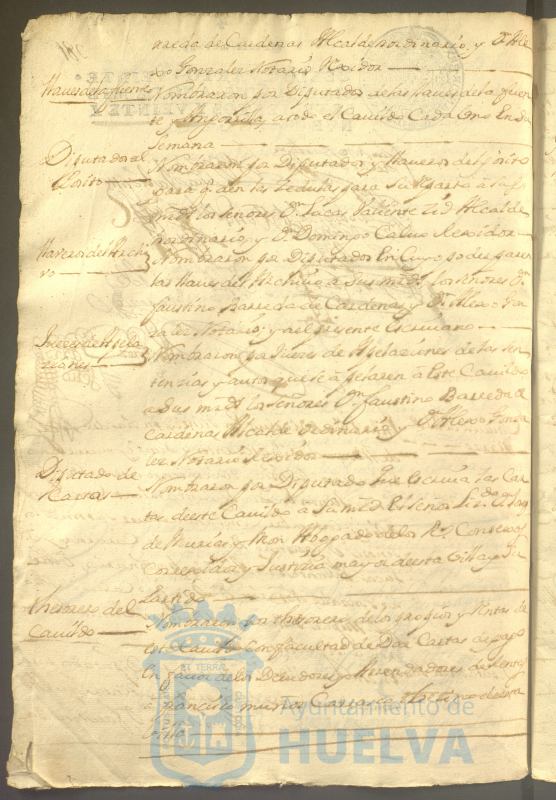 rreda de Cardenas Alcalde hordinario, y Dn Ale
xo Gonzalez Notario Rexidor
Llaves de la fuente
Nombraron por Diputados de las llaves de la fuen
te y a todo el Cavildo Cada Uno En su
Semana
Diputado al
Posito
Nombraron por Diputado y Llaveros del Posito
para qe den las Zedulas para su Reparto a sus
mrds los señores Dn Lucas Valiente Alcalde
hordinario, y Dn Domingo Calvo Rexidor
Llaveros del Archi
vo
Nombraron por Diputados En Cuyo poder paren
las llaves del Archivo a sus mrds los señores Dn
faustino Barreda de Cardenas y Dn Alexo Gon
zalez Notario, y a el presente Escrivano
Juezes de Apela
ziones
Nombraron por Juezes de Apelaziones de las sen
tenzias y autos que se apelaren a Este Cavildo
a sus mrds los señores Dn faustino Barreda de
Cardenas Alcalde hordinario y Dn Alexo Gonza
lez Notario Rexidor
Diputado de
Cartas
Nombraron por Diputado que Escriva las Car
tas de este Cavildo a su mrd El señor Lizdo Dn
de Abogado de los Rs Consejos
Correxidor y Justizia mayor de esta Villa y su
Partido
thesorero del
Cavildo
Nombraron por thesorero de los propios y Rentas de
este Cavildo Con facultad de Dar Cartas de pago
En favor de los Deudores y Arrendadores de Rentas
a franco muñoz vezino de esta
Villa
ET TERRAE
Ayuntamiento de
HUELVA